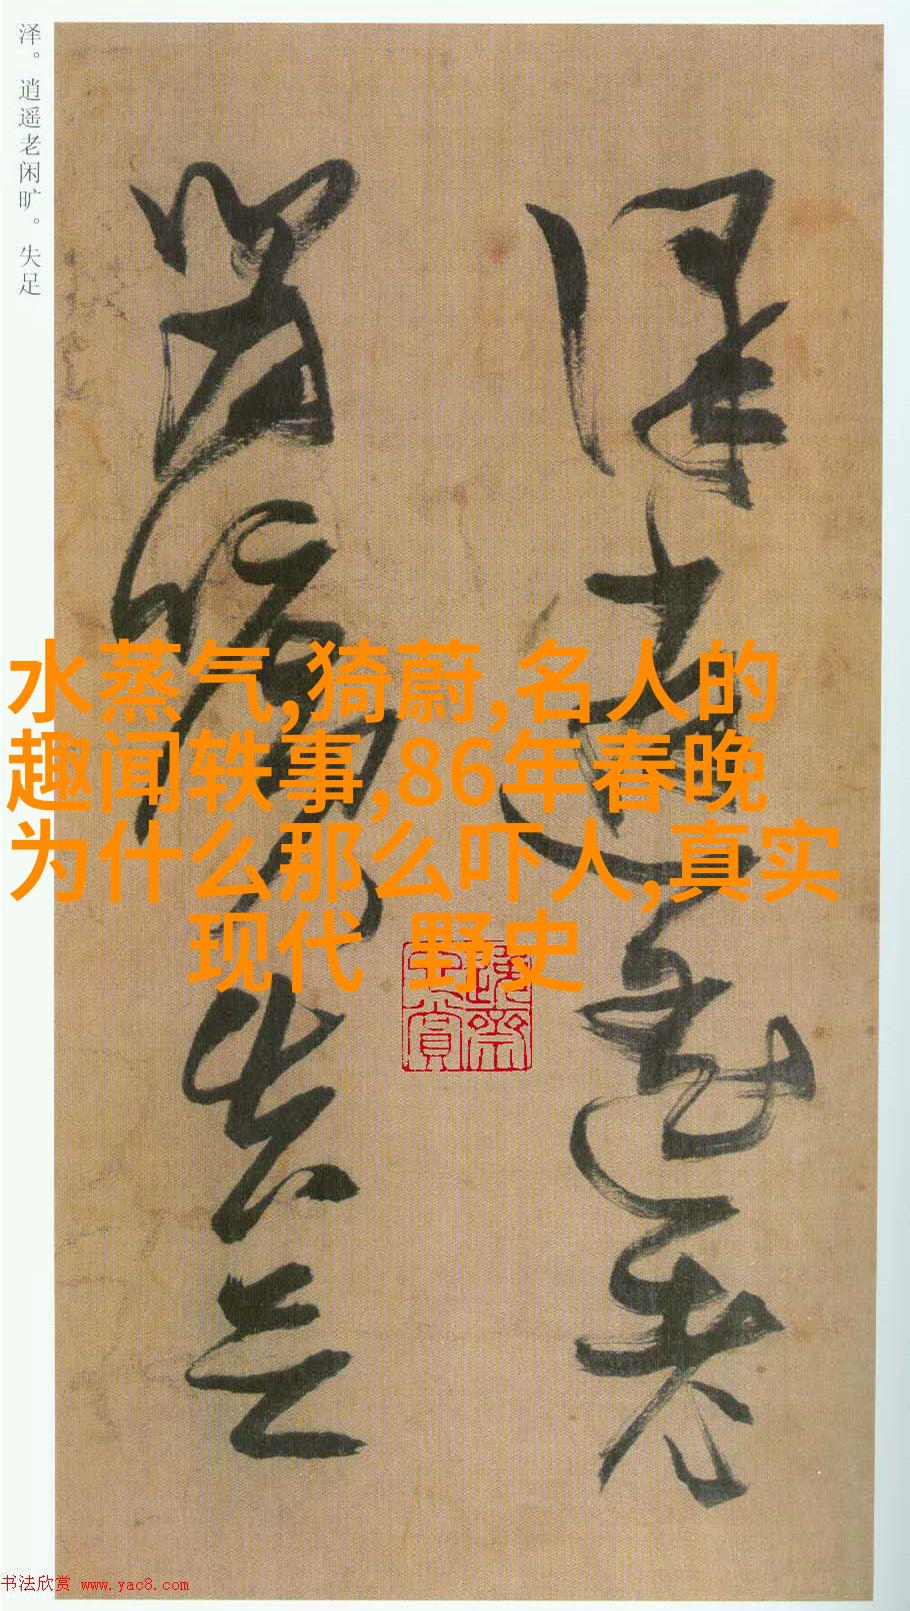 泽。逍遥老闲旷。失足
泽逍遥老
闲旷失足
水蒸气,猗蔚,名人的
趣闻轶事,86年春晚
为什么那么吓人,真实
现代 野史
书法欣赏 www.yac8.com